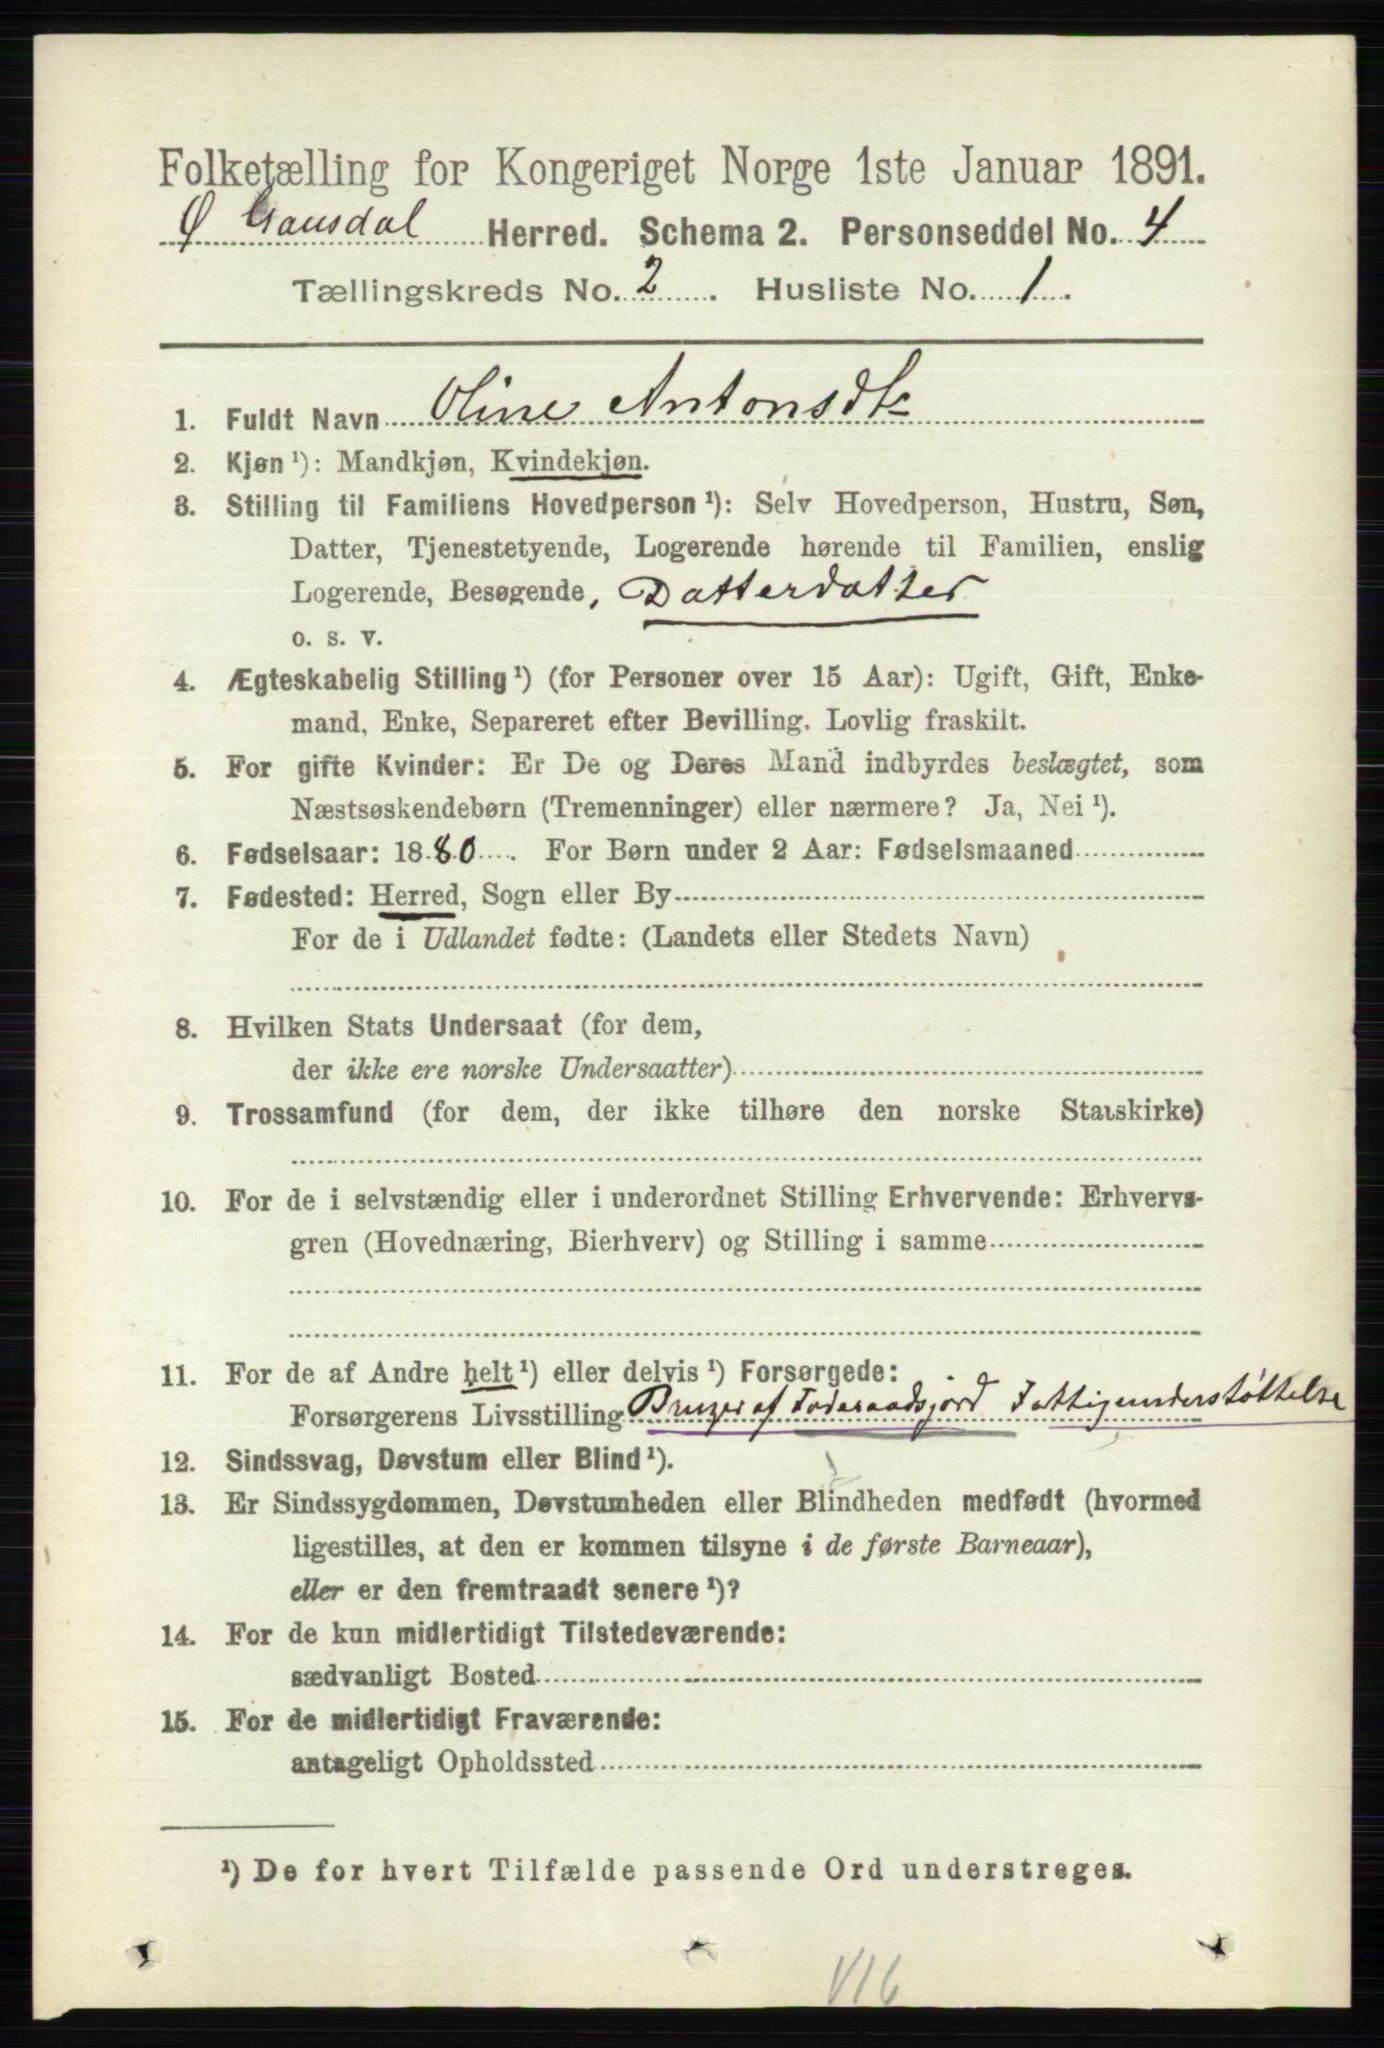 Folketælling for Kongeriget Norge 1ste Januar 1891.
Ø Gausdal Herred. Schema 2. Personseddel No. 4
Tællingskreds No. 2. Husliste No. 1.
1. Fuldt Navn Oline Antonsdtr
2. Kjøn ¹): Mandkjøn, Kvindekjøn.
3. Stilling til Familiens Hovedperson ¹): Selv Hovedperson, Hustru, Søn,
Datter, Tjenestetyende, Logerende hørende til Familien, enslig
Logerende, Besøgende, Datterdatter
o. s. v.
4. Ægteskabelig Stilling ¹) (for Personer over 15 Aar): Ugift, Gift, Enke-
mand, Enke, Separeret efter Bevilling. Lovlig fraskilt.
5. For gifte Kvinder: Er De og Deres Mand indbyrdes beslægtet, som
Næstsøskendebørn (Tremenninger) eller nærmere? Ja, Nei ¹).
6. Fødselsaar: 1880. For Børn under 2 Aar: Fødselsmaaned
7. Fødested: Herred, Sogn eller By
For de i Udlandet fødte: (Landets eller Stedets Navn)
8. Hvilken Stats Undersaat (for dem,
der ikke ere norske Undersaatter)
9. Trossamfund (for dem, der ikke tilhøre den norske Statskirke)
10. For de i selvstændig eller i underordnet Stilling Erhvervende: Erhvervs-
gren (Hovednæring, Bierhverv) og Stilling i samme
11. For de af Andre helt ¹) eller delvis ¹) Forsørgede:
Forsørgerens Livsstilling Bruger af Foderaadsjord Fattigunderstøttelse
12. Sindssvag, Døvstum eller Blind ¹).
13. Er Sindssygdommen, Døvstumheden eller Blindheden medfødt (hvormed
ligestilles, at den er kommen tilsyne i de første Barneaar),
eller er den fremtraadt senere ¹)?
14. For de kun midlertidigt Tilstedeværende:
sædvanligt Bosted
15. For de midlertidigt Fraværende:
antageligt Opholdssted
¹) De for hvert Tilfælde passende Ord understreges.